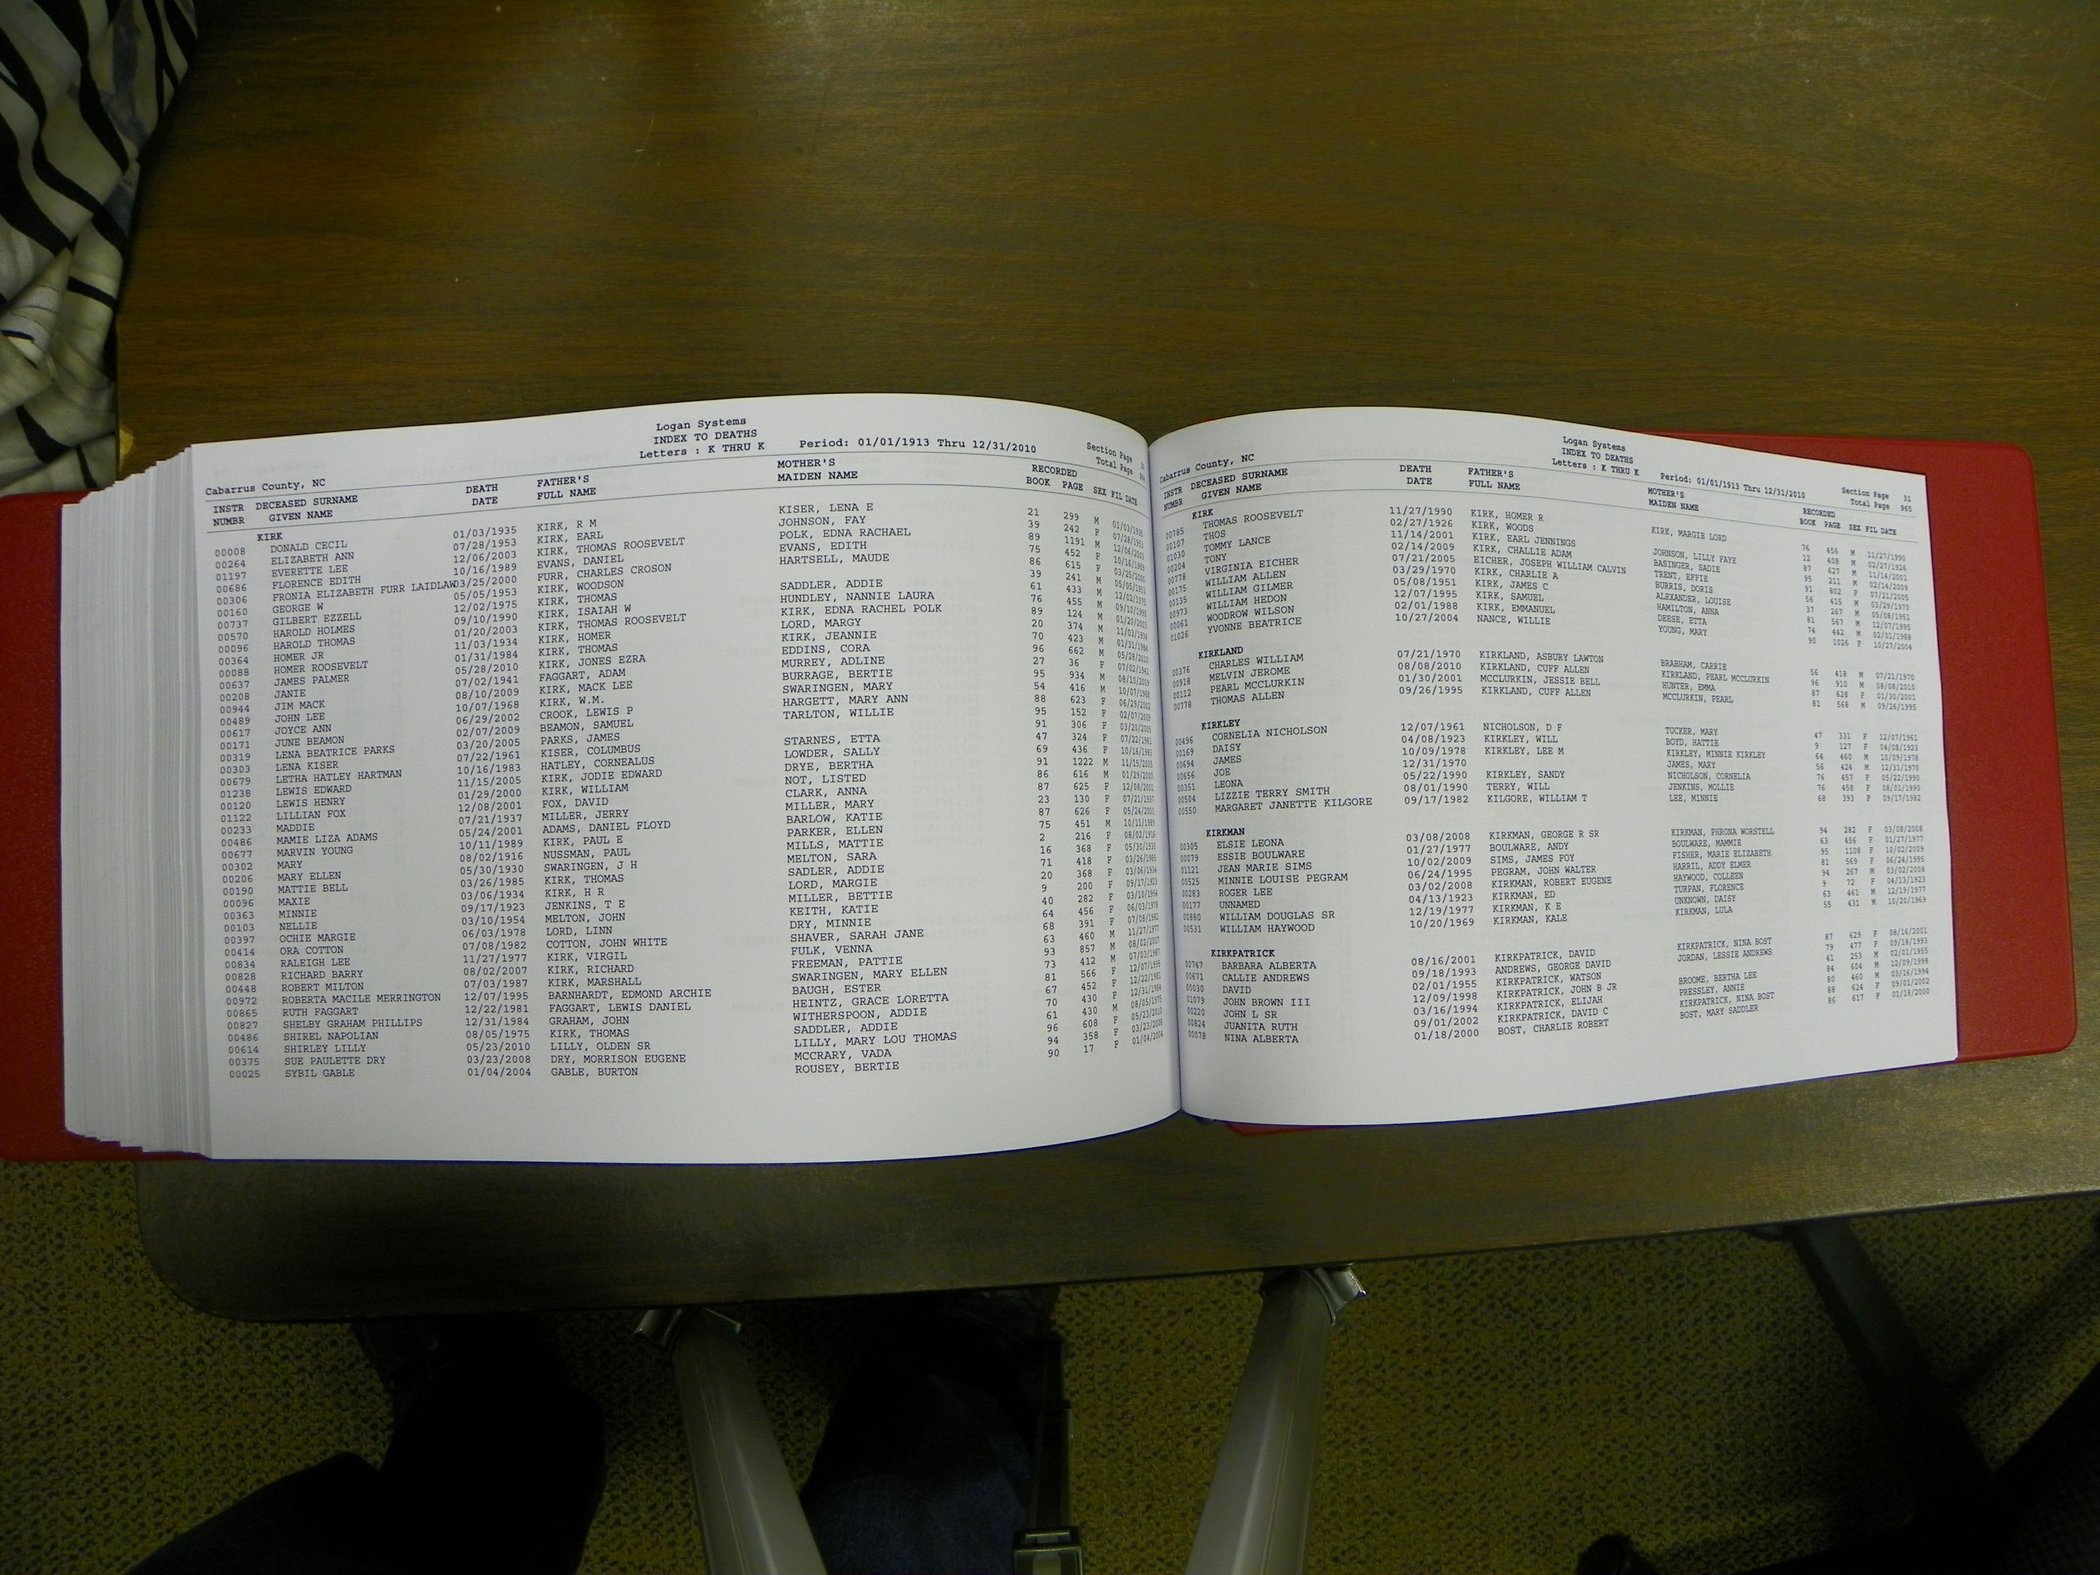 Logan Systems
INDEX TO DEATHS
Letters : K THRU K
Cabarrus County, NC Period: 01/01/1913 Thru 12/31/2010 Section Page Total Page
INSTR NUMBR DECEASED SURNAME GIVEN NAME DEATH DATE FATHER'S FULL NAME MOTHER'S MAIDEN NAME RECORDED BOOK PAGE SEX FIL DATE
KIRK
00008 DONALD CECIL 01/03/1935 KIRK, R M KISER, LENA E 21 299 M 01/03/1935
00264 ELIZABETH ANN 07/28/1953 KIRK, EARL JOHNSON, FAY 39 242 F 07/28/1953
01197 EVERETTE LEE 12/06/2003 KIRK, THOMAS ROOSEVELT POLK, EDNA RACHAEL 89 1191 M 12/06/2003
00686 FLORENCE EDITH 10/16/1989 EVANS, DANIEL EVANS, EDITH 75 452 F 10/16/1989
00306 FRONIA ELIZABETH FURR LAIDLAW 03/25/2000 FURR, CHARLES CROSON HARTSELL, MAUDE 86 615 F 03/25/2000
00160 GEORGE W 05/05/1953 KIRK, WOODSON 39 241 M 05/05/1953
00737 GILBERT EZZELL 12/02/1975 KIRK, THOMAS SADDLER, ADDIE 61 433 M 12/02/1975
00570 HAROLD HOLMES 09/10/1990 KIRK, ISAIAH W HUNDLEY, NANNIE LAURA 76 455 M 09/10/1990
00096 HAROLD THOMAS 01/20/2003 KIRK, THOMAS ROOSEVELT KIRK, EDNA RACHEL POLK 89 124 M 01/20/2003
00364 HOMER JR 11/03/1934 KIRK, HOMER LORD, MARGY 20 374 M 11/03/1934
00088 HOMER ROOSEVELT 01/31/1984 KIRK, THOMAS KIRK, JEANNIE 70 423 M 01/31/1984
00637 JAMES PALMER 05/28/2010 KIRK, JONES EZRA EDDINS, CORA 96 662 M 05/28/2010
00208 JANIE 07/02/1941 FAGGART, ADAM MURREY, ADLINE 27 36 F 07/02/1941
00944 JIM MACK 08/10/2009 KIRK, MACK LEE BURRAGE, BERTIE 95 934 M 08/10/2009
00489 JOHN LEE 10/07/1968 KIRK, W.M. SWARINGEN, MARY 54 416 M 10/07/1968
00617 JOYCE ANN 06/29/2002 CROOK, LEWIS P HARGETT, MARY ANN 88 623 F 06/29/2002
00171 JUNE BEAMON 02/07/2009 BEAMON, SAMUEL TARLTON, WILLIE 95 152 F 02/07/2009
00319 LENA BEATRICE PARKS 03/20/2005 PARKS, JAMES 91 306 F 03/20/2005
00303 LENA KISER 07/22/1961 KISER, COLUMBUS STARNES, ETTA 47 324 F 07/22/1961
00679 LETHA HATLEY HARTMAN 10/16/1983 HATLEY, CORNEALUS LOWDER, SALLY 69 436 F 10/16/1983
01238 LEWIS EDWARD 11/15/2005 KIRK, JODIE EDWARD DRYE, BERTHA 91 1222 M 11/15/2005
00120 LEWIS HENRY 01/29/2000 KIRK, WILLIAM NOT, LISTED 86 616 M 01/29/2000
01122 LILLIAN FOX 12/08/2001 FOX, DAVID CLARK, ANNA 87 625 F 12/08/2001
00233 MADDIE 07/21/1937 MILLER, JERRY MILLER, MARY 23 130 F 07/21/1937
00486 MAMIE LIZA ADAMS 05/24/2001 ADAMS, DANIEL FLOYD BARLOW, KATIE 87 626 F 05/24/2001
00677 MARVIN YOUNG 10/11/1989 KIRK, PAUL E PARKER, ELLEN 75 451 M 10/11/1989
00302 MARY 08/02/1916 NUSSMAN, PAUL MILLS, MATTIE 2 216 F 08/02/1916
00206 MARY ELLEN 05/30/1930 SWARINGEN, J H MELTON, SARA 16 368 F 05/30/1930
00190 MATTIE BELL 03/26/1985 KIRK, THOMAS SADLER, ADDIE 71 418 F 03/26/1985
00096 MAXIE 03/06/1934 KIRK, H R LORD, MARGIE 20 368 F 03/06/1934
00363 MINNIE 09/17/1923 JENKINS, T E MILLER, BETTIE 9 200 F 09/17/1923
00103 NELLIE 03/10/1954 MELTON, JOHN KEITH, KATIE 40 282 F 03/10/1954
00397 OCHIE MARGIE 06/03/1978 LORD, LINN DRY, MINNIE 64 456 F 06/03/1978
00414 ORA COTTON 07/08/1982 COTTON, JOHN WHITE SHAVER, SARAH JANE 68 391 F 07/08/1982
00834 RALEIGH LEE 11/27/1977 KIRK, VIRGIL FULK, VENNA 63 460 M 11/27/1977
00828 RICHARD BARRY 08/02/2007 KIRK, RICHARD FREEMAN, PATTIE 93 857 M 08/02/2007
00448 ROBERT MILTON 07/03/1987 KIRK, MARSHALL SWARINGEN, MARY ELLEN 73 412 M 07/03/1987
00972 ROBERTA MACILE MERRINGTON 12/07/1995 BARNHARDT, EDMOND ARCHIE BAUGH, ESTER 81 566 F 12/07/1995
00865 RUTH FAGGART 12/22/1981 FAGGART, LEWIS DANIEL HEINTZ, GRACE LORETTA 67 452 F 12/22/1981
00827 SHELBY GRAHAM PHILLIPS 12/31/1984 GRAHAM, JOHN WITHERSPOON, ADDIE 70 430 F 12/31/1984
00486 SHIREL NAPOLIAN 08/05/1975 KIRK, THOMAS SADDLER, ADDIE 61 430 M 08/05/1975
00614 SHIRLEY LILLY 05/23/2010 LILLY, OLDEN SR LILLY, MARY LOU THOMAS 96 608 F 05/23/2010
00375 SUE PAULETTE DRY 03/23/2008 DRY, MORRISON EUGENE MCCRARY, VADA 94 358 F 03/23/2008
00025 SYBIL GABLE 01/04/2004 GABLE, BURTON ROUSEY, BERTIE 90 17 F 01/04/2004
Logan Systems
INDEX TO DEATHS
Letters : K THRU K
Cabarrus County, NC Period: 01/01/1913 Thru 12/31/2010 Section Page 31 Total Page 965
INSTR NUMBR DECEASED SURNAME GIVEN NAME DEATH DATE FATHER'S FULL NAME MOTHER'S MAIDEN NAME RECORDED BOOK PAGE SEX FIL DATE
KIRK
00785 THOMAS ROOSEVELT 11/27/1990 KIRK, HOMER R KIRK, MARGIE LORD 76 456 M 11/27/1990
00107 THOS 02/27/1926 KIRK, WOODS 12 408 M 02/27/1926
01030 TOMMY LANCE 11/14/2001 KIRK, EARL JENNINGS JOHNSON, LILLY FAYE 87 627 M 11/14/2001
00204 TONY 02/14/2009 KIRK, CHALLIE ADAM BASINGER, SADIE 95 211 M 02/14/2009
00778 VIRGINIA EICHER 07/21/2005 EICHER, JOSEPH WILLIAM CALVIN TRENT, EFFIE 91 802 F 07/21/2005
00175 WILLIAM ALLEN 03/29/1970 KIRK, CHARLIE A BURRIS, DORIS 56 415 M 03/29/1970
00135 WILLIAM GILMER 05/08/1951 KIRK, JAMES C ALEXANDER, LOUISE 37 267 M 05/08/1951
00973 WILLIAM HEDON 12/07/1995 KIRK, SAMUEL HAMILTON, ANNA 81 567 M 12/07/1995
00061 WOODROW WILSON 02/01/1988 KIRK, EMMANUEL DEESE, ETTA 74 442 M 02/01/1988
01026 YVONNE BEATRICE 10/27/2004 NANCE, WILLIE YOUNG, MARY 90 1026 F 10/27/2004
KIRKLAND
00376 CHARLES WILLIAM 07/21/1970 KIRKLAND, ASBURY LAWTON BRABHAM, CARRIE 56 418 M 07/21/1970
00918 MELVIN JEROME 08/08/2010 KIRKLAND, CUFF ALLEN KIRKLAND, PEARL MCCLURKIN 96 910 M 08/08/2010
00112 PEARL MCCLURKIN 01/30/2001 MCCLURKIN, JESSIE BELL HUNTER, EMMA 87 628 F 01/30/2001
00778 THOMAS ALLEN 09/26/1995 KIRKLAND, CUFF ALLEN MCCLURKIN, PEARL 81 568 M 09/26/1995
KIRKLEY
00496 CORNELIA NICHOLSON 12/07/1961 NICHOLSON, D F TUCKER, MARY 47 331 F 12/07/1961
00169 DAISY 04/08/1923 KIRKLEY, WILL BOYD, HATTIE 9 127 F 04/08/1923
00694 JAMES 10/09/1978 KIRKLEY, LEE M KIRKLEY, MINNIE KIRKLEY 64 460 M 10/09/1978
00656 JOE 12/31/1970 JAMES, MARY 56 424 M 12/31/1970
00351 LEONA 05/22/1990 KIRKLEY, SANDY NICHOLSON, CORNELIA 76 457 F 05/22/1990
00504 LIZZIE TERRY SMITH 08/01/1990 TERRY, WILL JENKINS, MOLLIE 76 458 F 08/01/1990
00550 MARGARET JANETTE KILGORE 09/17/1982 KILGORE, WILLIAM T LEE, MINNIE 68 393 F 09/17/1982
KIRKMAN
00305 ELSIE LEONA 03/08/2008 KIRKMAN, GEORGE R SR KIRKMAN, PHRONA WORSTELL 94 282 F 03/08/2008
00079 ESSIE BOULWARE 01/27/1977 BOULWARE, ANDY BOULWARE, MAMMIE 63 456 F 01/27/1977
01121 JEAN MARIE SIMS 10/02/2009 SIMS, JAMES FOY FISHER, MARIE ELIZABETH 95 1108 F 10/02/2009
00525 MINNIE LOUISE PEGRAM 06/24/1995 PEGRAM, JOHN WALTER HARRIL, ADDY ELMER 81 569 F 06/24/1995
00283 ROGER LEE 03/02/2008 KIRKMAN, ROBERT EUGENE HAYWOOD, COLLEEN 94 267 M 03/02/2008
00177 UNNAMED 04/13/1923 KIRKMAN, ED TURPAN, FLORENCE 9 72 F 04/13/1923
00880 WILLIAM DOUGLAS SR 12/19/1977 KIRKMAN, K E UNKNOWN, DAISY 63 461 M 12/19/1977
00531 WILLIAM HAYWOOD 10/20/1969 KIRKMAN, KALE KIRKMAN, LULA 55 431 M 10/20/1969
KIRKPATRICK
00747 BARBARA ALBERTA 08/16/2001 KIRKPATRICK, DAVID KIRKPATRICK, NINA BOST 87 629 F 08/16/2001
00671 CALLIE ANDREWS 09/18/1993 ANDREWS, GEORGE DAVID JORDAN, LESSIE ANDREWS 79 477 F 09/18/1993
00030 DAVID 02/01/1955 KIRKPATRICK, WATSON 41 253 M 02/01/1955
01079 JOHN BROWN III 12/09/1998 KIRKPATRICK, JOHN B JR BROOME, BERTHA LEE 84 604 M 12/09/1998
00220 JOHN L SR 03/16/1994 KIRKPATRICK, ELIJAH PRESSLEY, ANNIE 80 460 M 03/16/1994
00824 JUANITA RUTH 09/01/2002 KIRKPATRICK, DAVID C KIRKPATRICK, NINA BOST 88 624 F 09/01/2002
00078 NINA ALBERTA 01/18/2000 BOST, CHARLIE ROBERT BOST, MARY SADDLER 86 617 F 01/18/2000